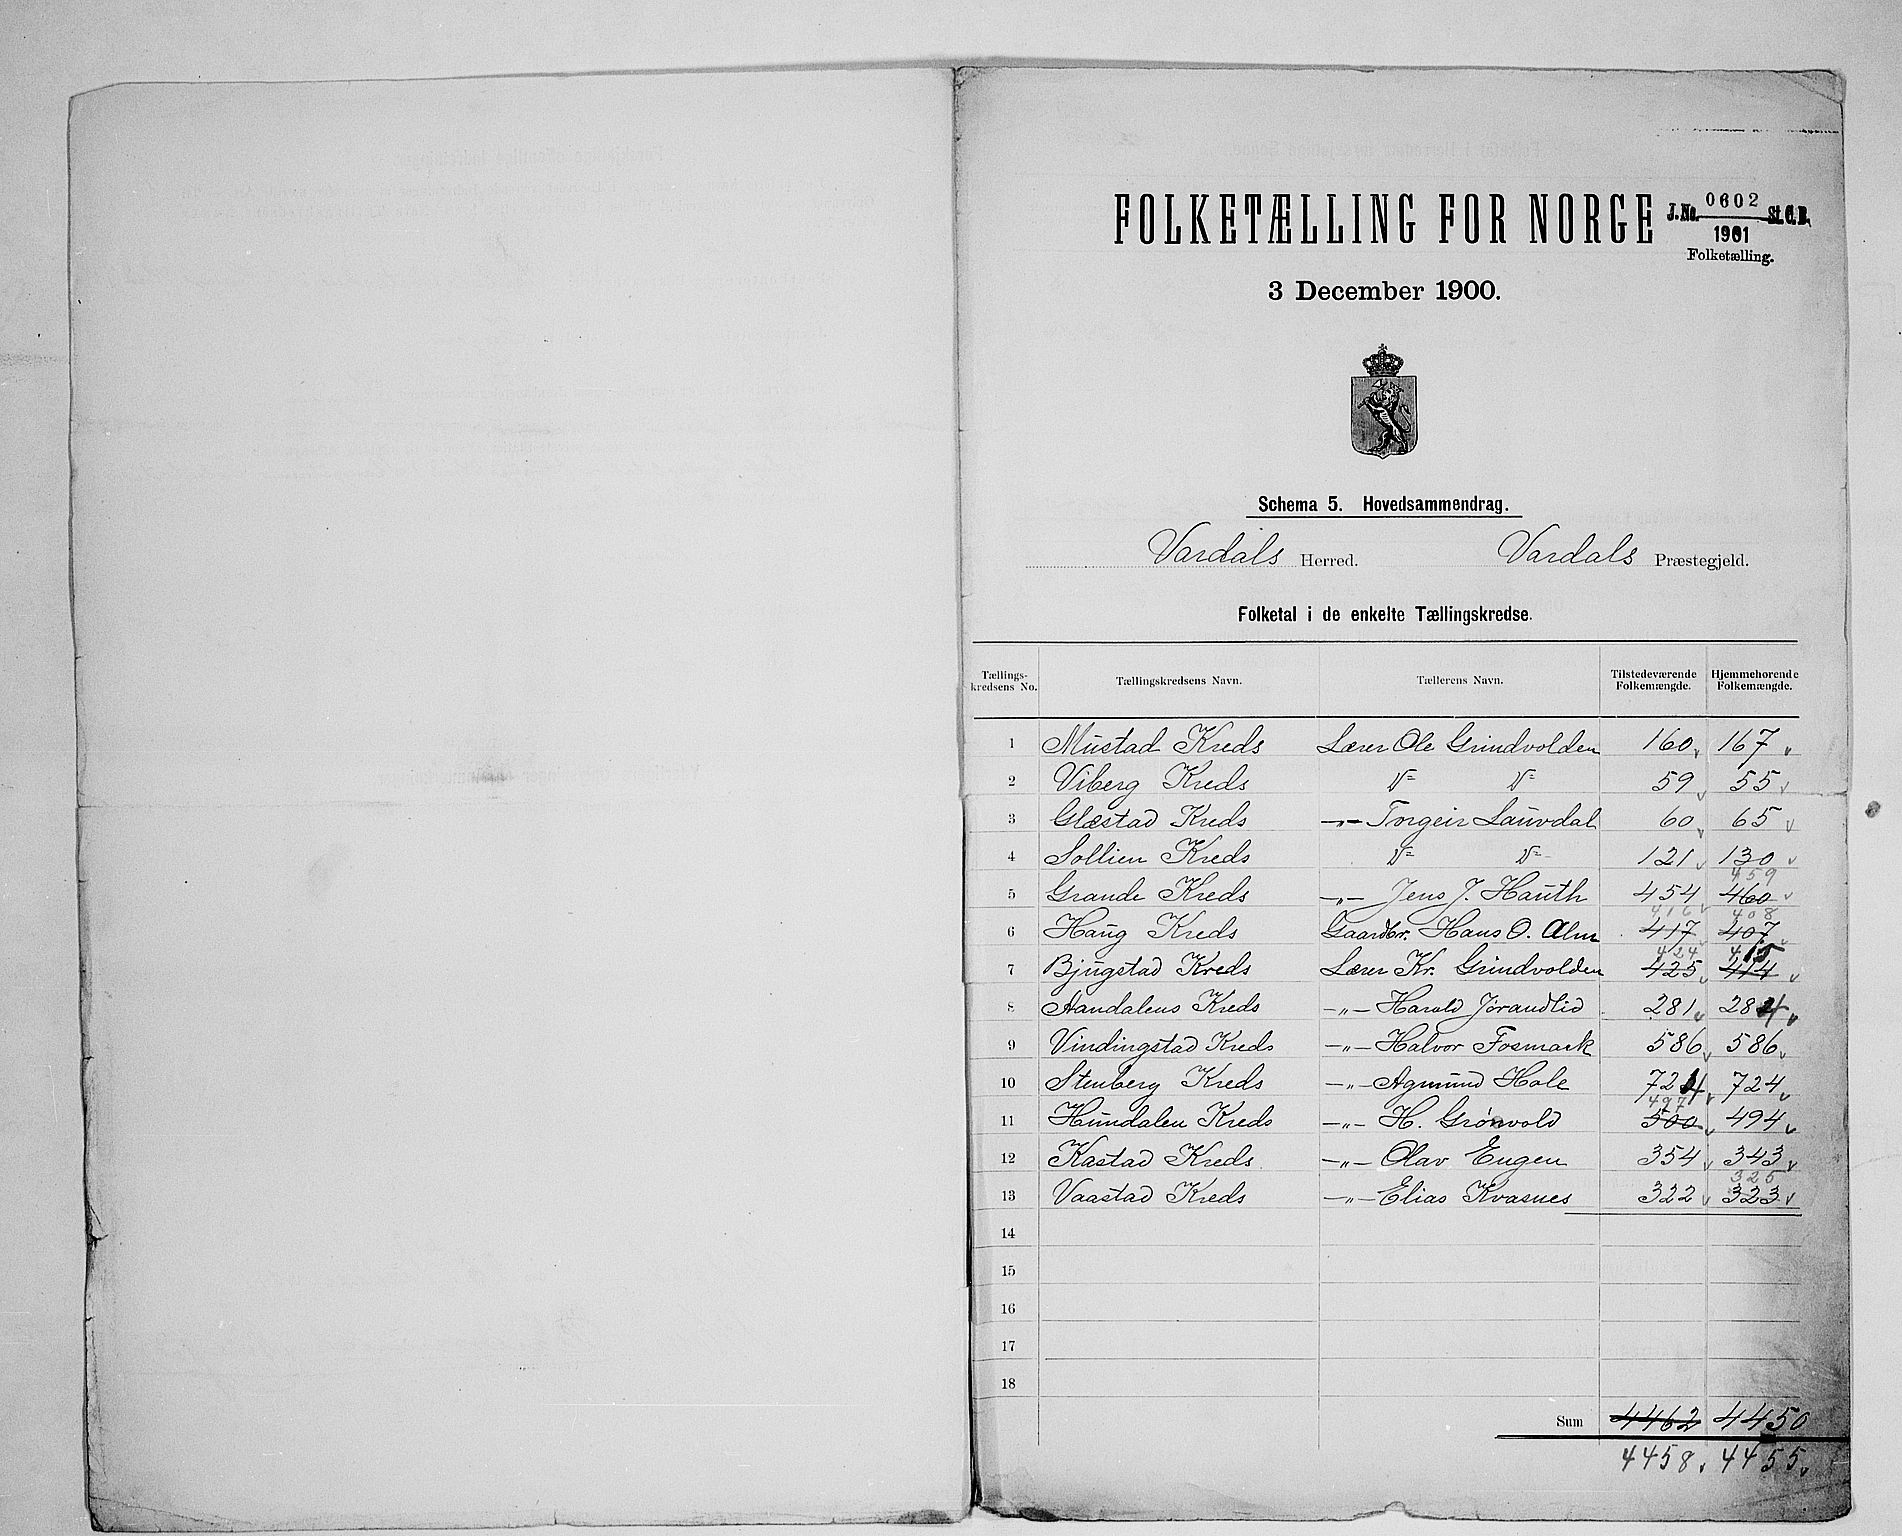 FOLKETÆLLING FOR NORGE
J. No. 0602 St. C. B.
1901
Folketælling.
3 December 1900.
Schema 5. Hovedsammendrag.
Vardals Herred. Vardals Præstegjeld.
Folketal i de enkelte Tællingskredse.
Tællings-kredsens No. Tællingskredsens Navn. Tællerens Navn. Tilstedeværende Folkemængde. Hjemmehørende Folkemængde.
1 Mustad Kreds Lærer Ole Grindvolden 160 167
2 Viberg Kreds D= D= 59 55
3 Glæstad Kreds -"- Torgeir Lauvdal 60 65
4 Sollien Kreds D= D= 121 130
459
5 Grande Kreds -"- Jens J. Hauth 454 460
416 408
6 Haug Kreds Gaardbr. Hans O. Alm 417 407
424 415
7 Bjugstad Kreds Lærer Kr. Grindvolden 425 414
8 Aandalens Kreds -"- Harald Jørandlid 281 284
9 Vindingstad Kreds -"- Halvor Fosmark 586 586
10 Stenberg Kreds -"- Agmund Hole 724 724
497
11 Hundalen Kreds -"- H. Grønvold 500 494
12 Kastad Kreds -"- Olav Engen 354 343
325
13 Vaastad Kreds -"- Elias Kvasnes 322 323
14
15
16
17
18
Sum 4462 4450
4458 4455